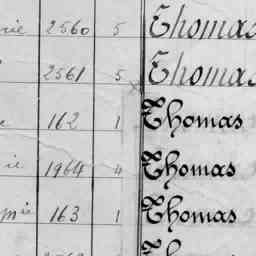 rie 2560 5 Thomas
2561 5 Thomas
e 162 1 Thomas
ie 1964 4 Thomas
mie 163 1 Thomas